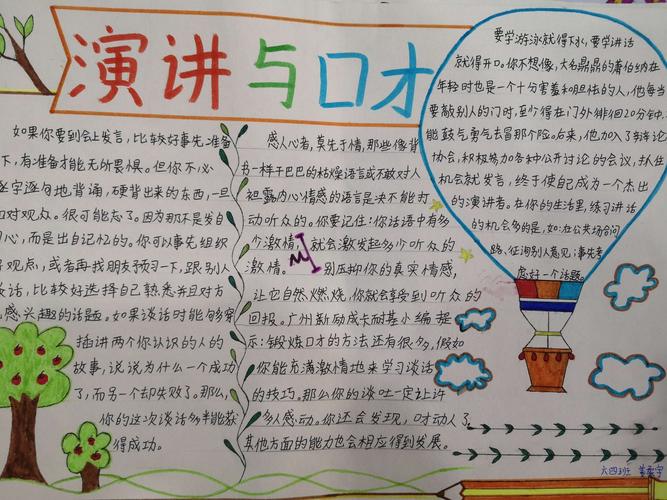 演讲与口才
如果你要到会上发言,比较好事先准备
下,有准备才能无所畏惧。但你不必
逐字逐句地背诵,硬背出来的东西,一旦
面对观众。很可能忘了。因为那不是发自
内心,而是出自记忆的。你可以事先组织
观点,或者再找朋友预习一下,跟别人
谈话,比较好选择自己熟悉并且对方
感兴趣的话题。如果谈话时能够穿
插讲两个你认识的人的
故事,说说为什么一个成功
了,而另一个却失败了。那么,
你的这次谈话多半能获
得成功。
感人心者,莫先于情,那些像背
书一样干巴巴的枯燥语言或不敢对人
袒露内心情感的语言是决不能打
动听众的。你要记住:你话语中有多
少激情,就会激发起多少听众的
激情。别压抑你的真实情感,
让它自然燃烧,你就会享受到听众的
回报。广州新励成卡耐基小编提
示:锻炼口才的方法还有很多,假如
你能充满激情地来学习谈话
的技巧。那么你的谈吐一定让许
多人感动。你还会发现,口才动人了
其他方面的能力也会相应得到发展。
要学游泳就得下水,要学讲话
就得开口。你不想像,大名鼎鼎的萧伯纳在
年轻时也是一个十分害羞和胆怯的人,他每当
要敲别人的门时,至少得在门外徘徊20分钟,
能鼓气勇气去冒那个险。后来,他加入了辩论
协会,积极参加各种公开讨论的会议,抓住
机会就发言,终于使自己成为一个杰出
的演讲者。在你的生活里,练习讲话
的机会多的是,如:在公共场合问
路、征询别人意见;事先考
虑好一个话题。
六四班